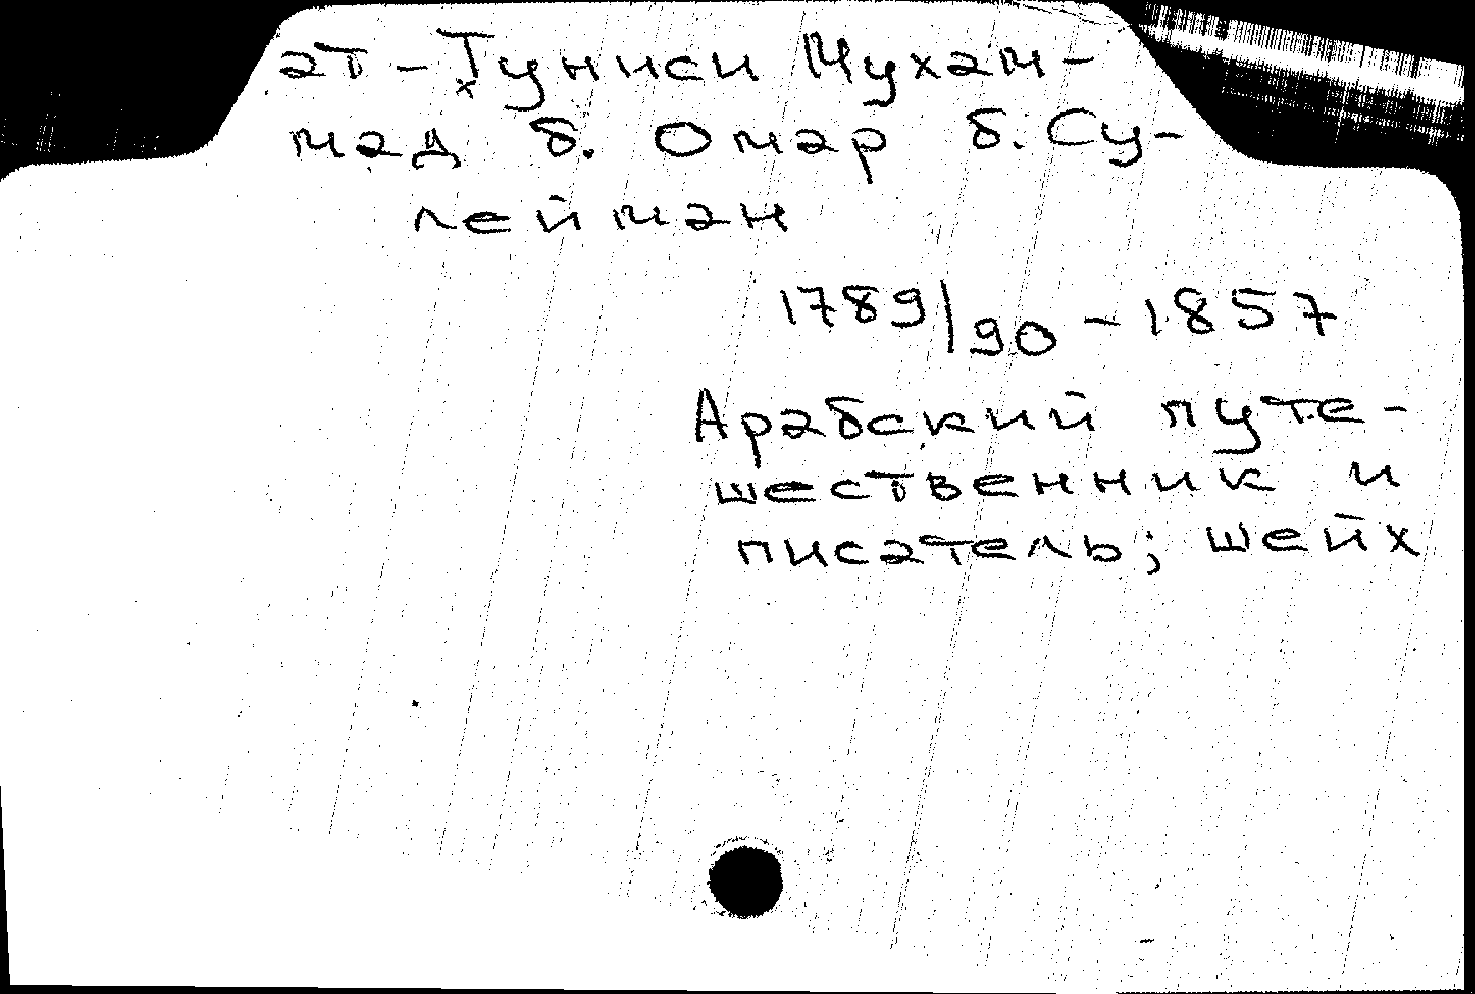 ат-Туниси Мухам-
мад б. Омар б. Су-
лейман
1789/90-1857
Арабский путе-
шественник и
писатель; шейх